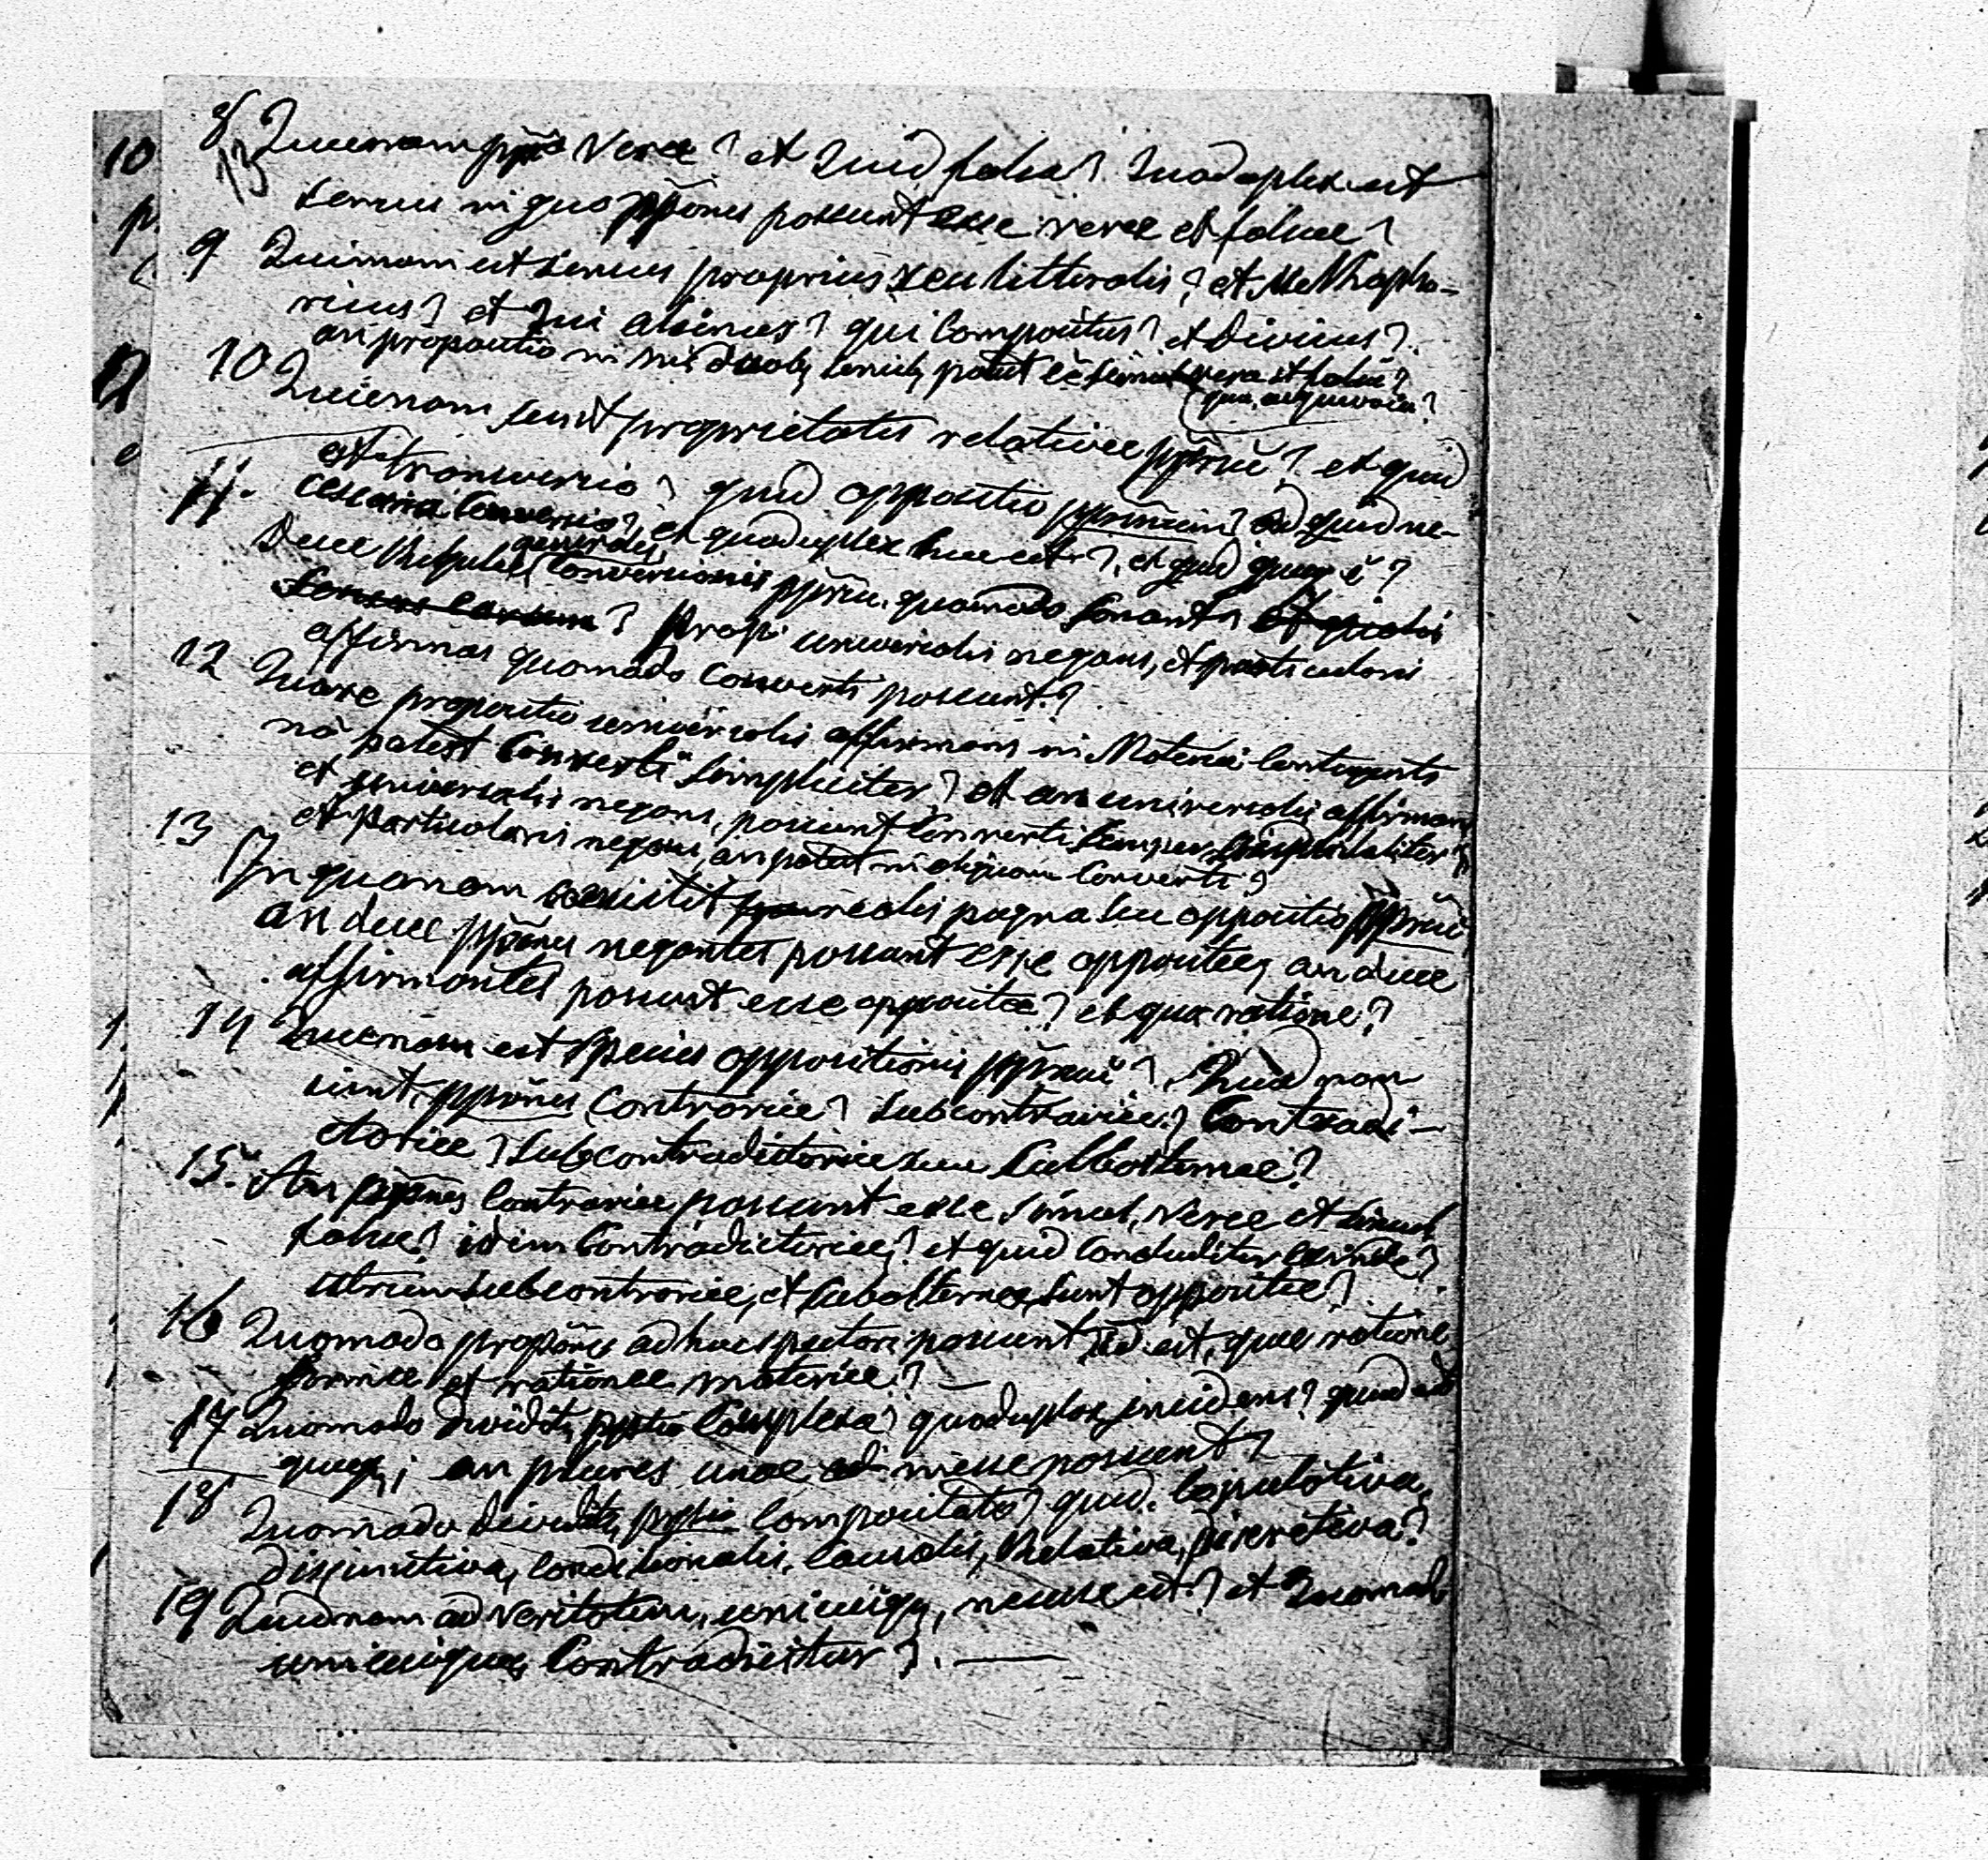 8 Quænam ppõ Veræ? et Quid falsa? Quaduplex est
13
sensus in quo ppõnes possunt esse veræ et falsæ?
9 Quinam est sensus proprius seu litteralis? et Methapho-
ricus? et Qui divisus? qui Compositus? et Divisus?
an propositio in his duobq sensibq potest eẽ simul vera et falsa?
10 Quænam sunt proprietates relativæ ppõnũ? et quid
est conversio? quid oppositio ppõnum? et quid ne-
11. cessaria Conversio? et quaduplex hæc est? et quid quæq ẽ?
Duæ Regulæ generales Conversionis ppõnũ quomodo sonant? et qualis
? Prop. universalis negans, et particularis
affirmas quomodo Converti possunt?
12 Quare propositio universalis affirmans in Materia Contingenti
nõ potest Converti simpliciter? et an universalis affirmans
et universalis negans, possunt Converti semper
et particularis negans, an potest in aliquam Converti?
13 In quanam consistit realis pugna seu oppositio ppõnũ
an duæ ppõnes negantes possunt esse oppositæ, an duæ
affirmantes possunt esse oppositæ? et qua ratione?
14 Quænam est species oppositionis ppõnũ? Quænam
sunt ppõnes Contrariæ? subcontrariæ? Contradi-
ctoriæ? Subcontradictoriæ seu Subalternæ?
15. An ppõnes Contrariæ possunt esse simul, Veræ et simul
falsæ? idem Contradictoriæ? et quid Concluditur exinde?
utrum subcontrariæ, et subalternæ sunt oppositæ?
16 Quomodo propõnes adhuc spectari possunt id est, quæ ratione
formæ et ratione materiæ? —
17 Quomodo dividitq ppõtio Complexa? quaduplex incidens? quid est
quæq; an plures unae inesse possunt?
18 Quomodo dividitq pptio Composita? quid. Copulativa,
disjunctiva, Conditionalis, Causalis, Relativa, discretiva?
19 Quidnam ad Veritatem, unicuiqq, necesse est? et Quomodo
unicuiquæ Contradicitur? —